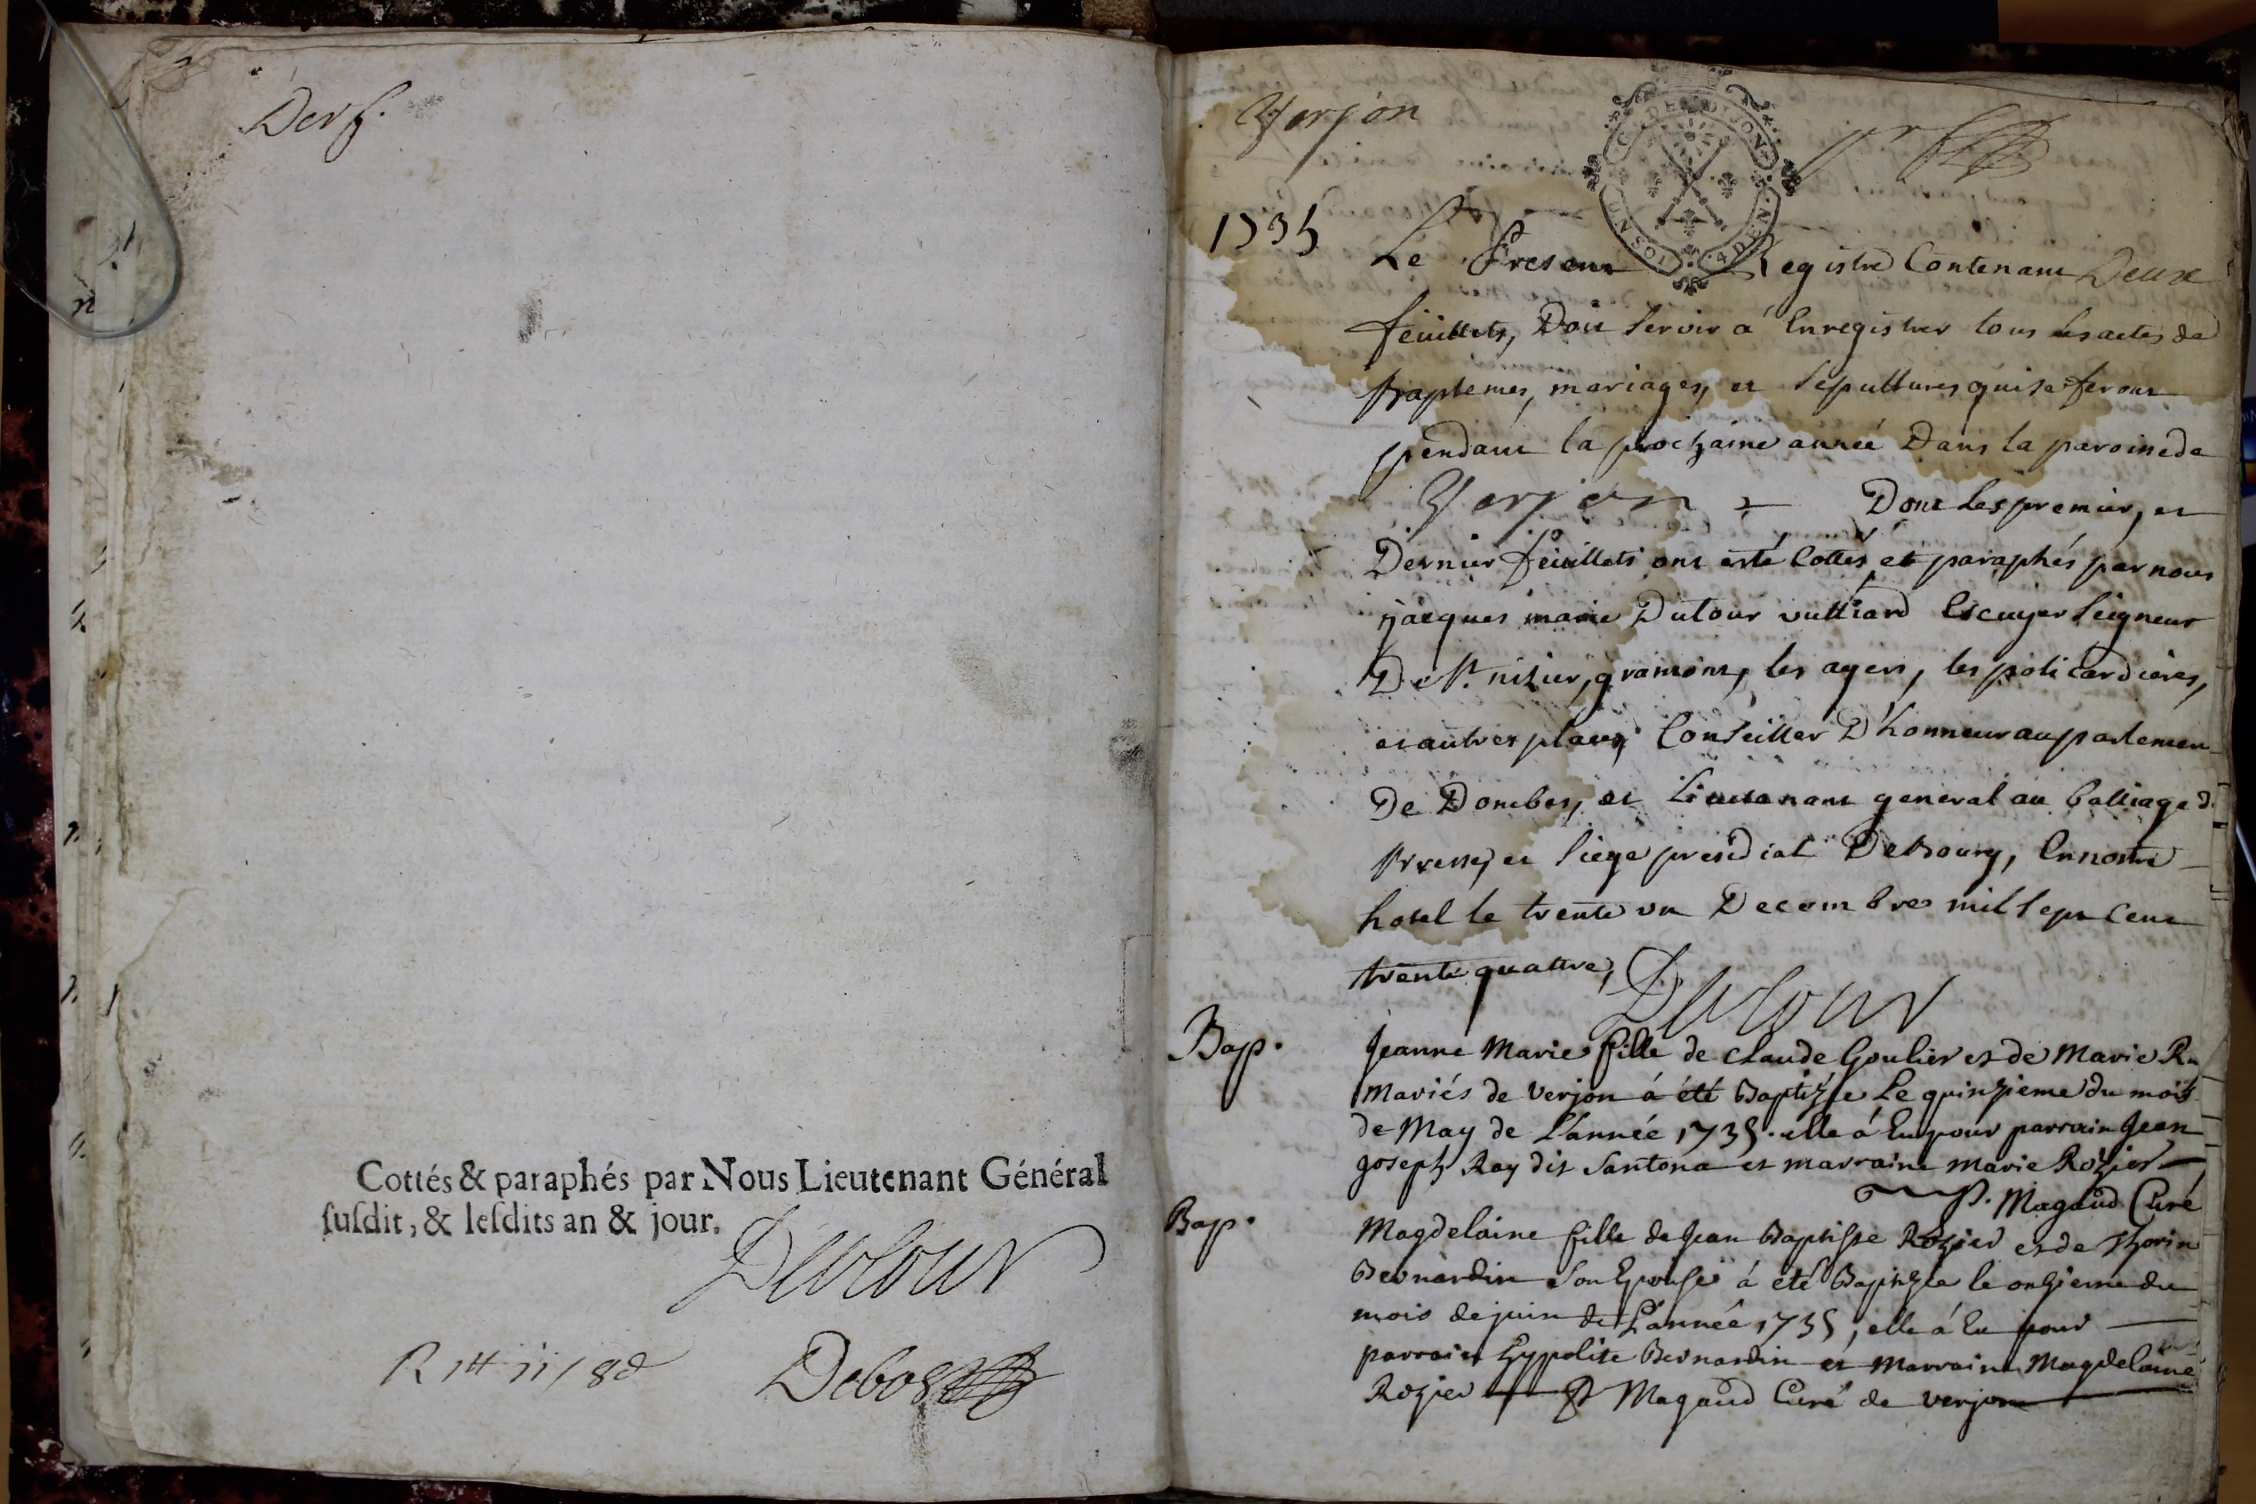 Der f.
Cottés & paraphés par Nous Lieutenant Général
ſuſdit, & leſdits an & jour.
Dutour
Debost
Verjon
G. DE DIJON
UNSOL 4 DEN
1735
Le Present Registre Contenant Deux
feüillets, Doit servir á Enregistrer tous les actes de
baptemes, mariages, et sepultures qui se feront
pendant la prochaine année Dans la paroisse de
Verjon Dont les premier, et
Dernier feüillets ont esté Cottés et paraphés par nous
jacques marie Dutour vulliard Escuyer seigneur
De St. nizier, gramont, les ayers, les policardieres,
et autres places, Conseiller D'honneur au parlement
De Dombes, et Lieutenant general au balliage d
bresse, et siege presidial De bourg, En nostre
hotel le trente un Decembre mil sept Cent
trente quattre,
Dutour
Bap. Jeanne Marie fille de Claude Goulier et de Marie
Mariés de Verjon á été Baptizée Le quinzieme du mois
de May de L'année 1735. elle á Eu pour parrain Jean
Joseph Ray dit Santona et marraine Marie Rozier
P. Magaud Curé
Bap. Magdelaine fille de Jean Baptiste Rozier et de
Bernardin son Epouse á été Baptizée le onzieme du
mois de juin de L'année 1735, elle á Eu pour
parrain Hyppolite Bernardin et Marraine Magdelaine
Rozier P Magaud Curé de verjon